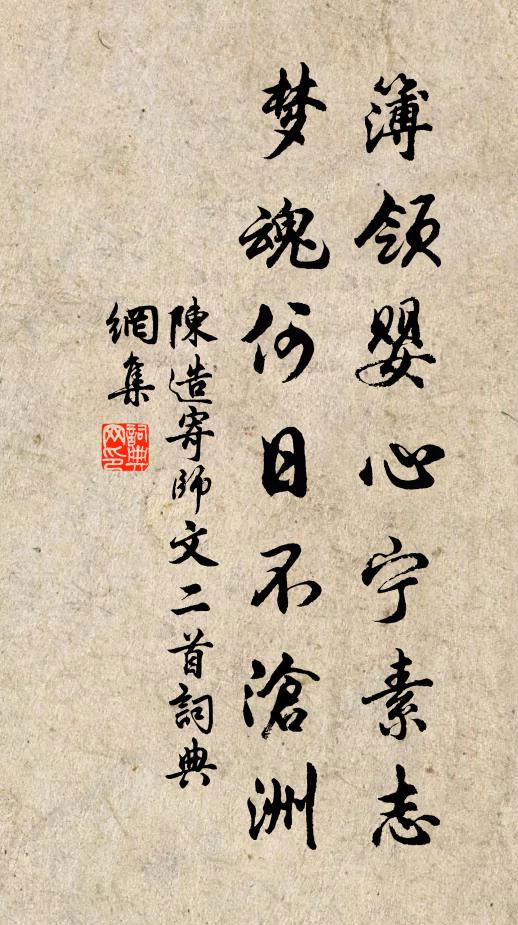 簿领婴心宁素志
梦魂何日不滄洲
陳造寄師文二首詞典
網集
詞典網印